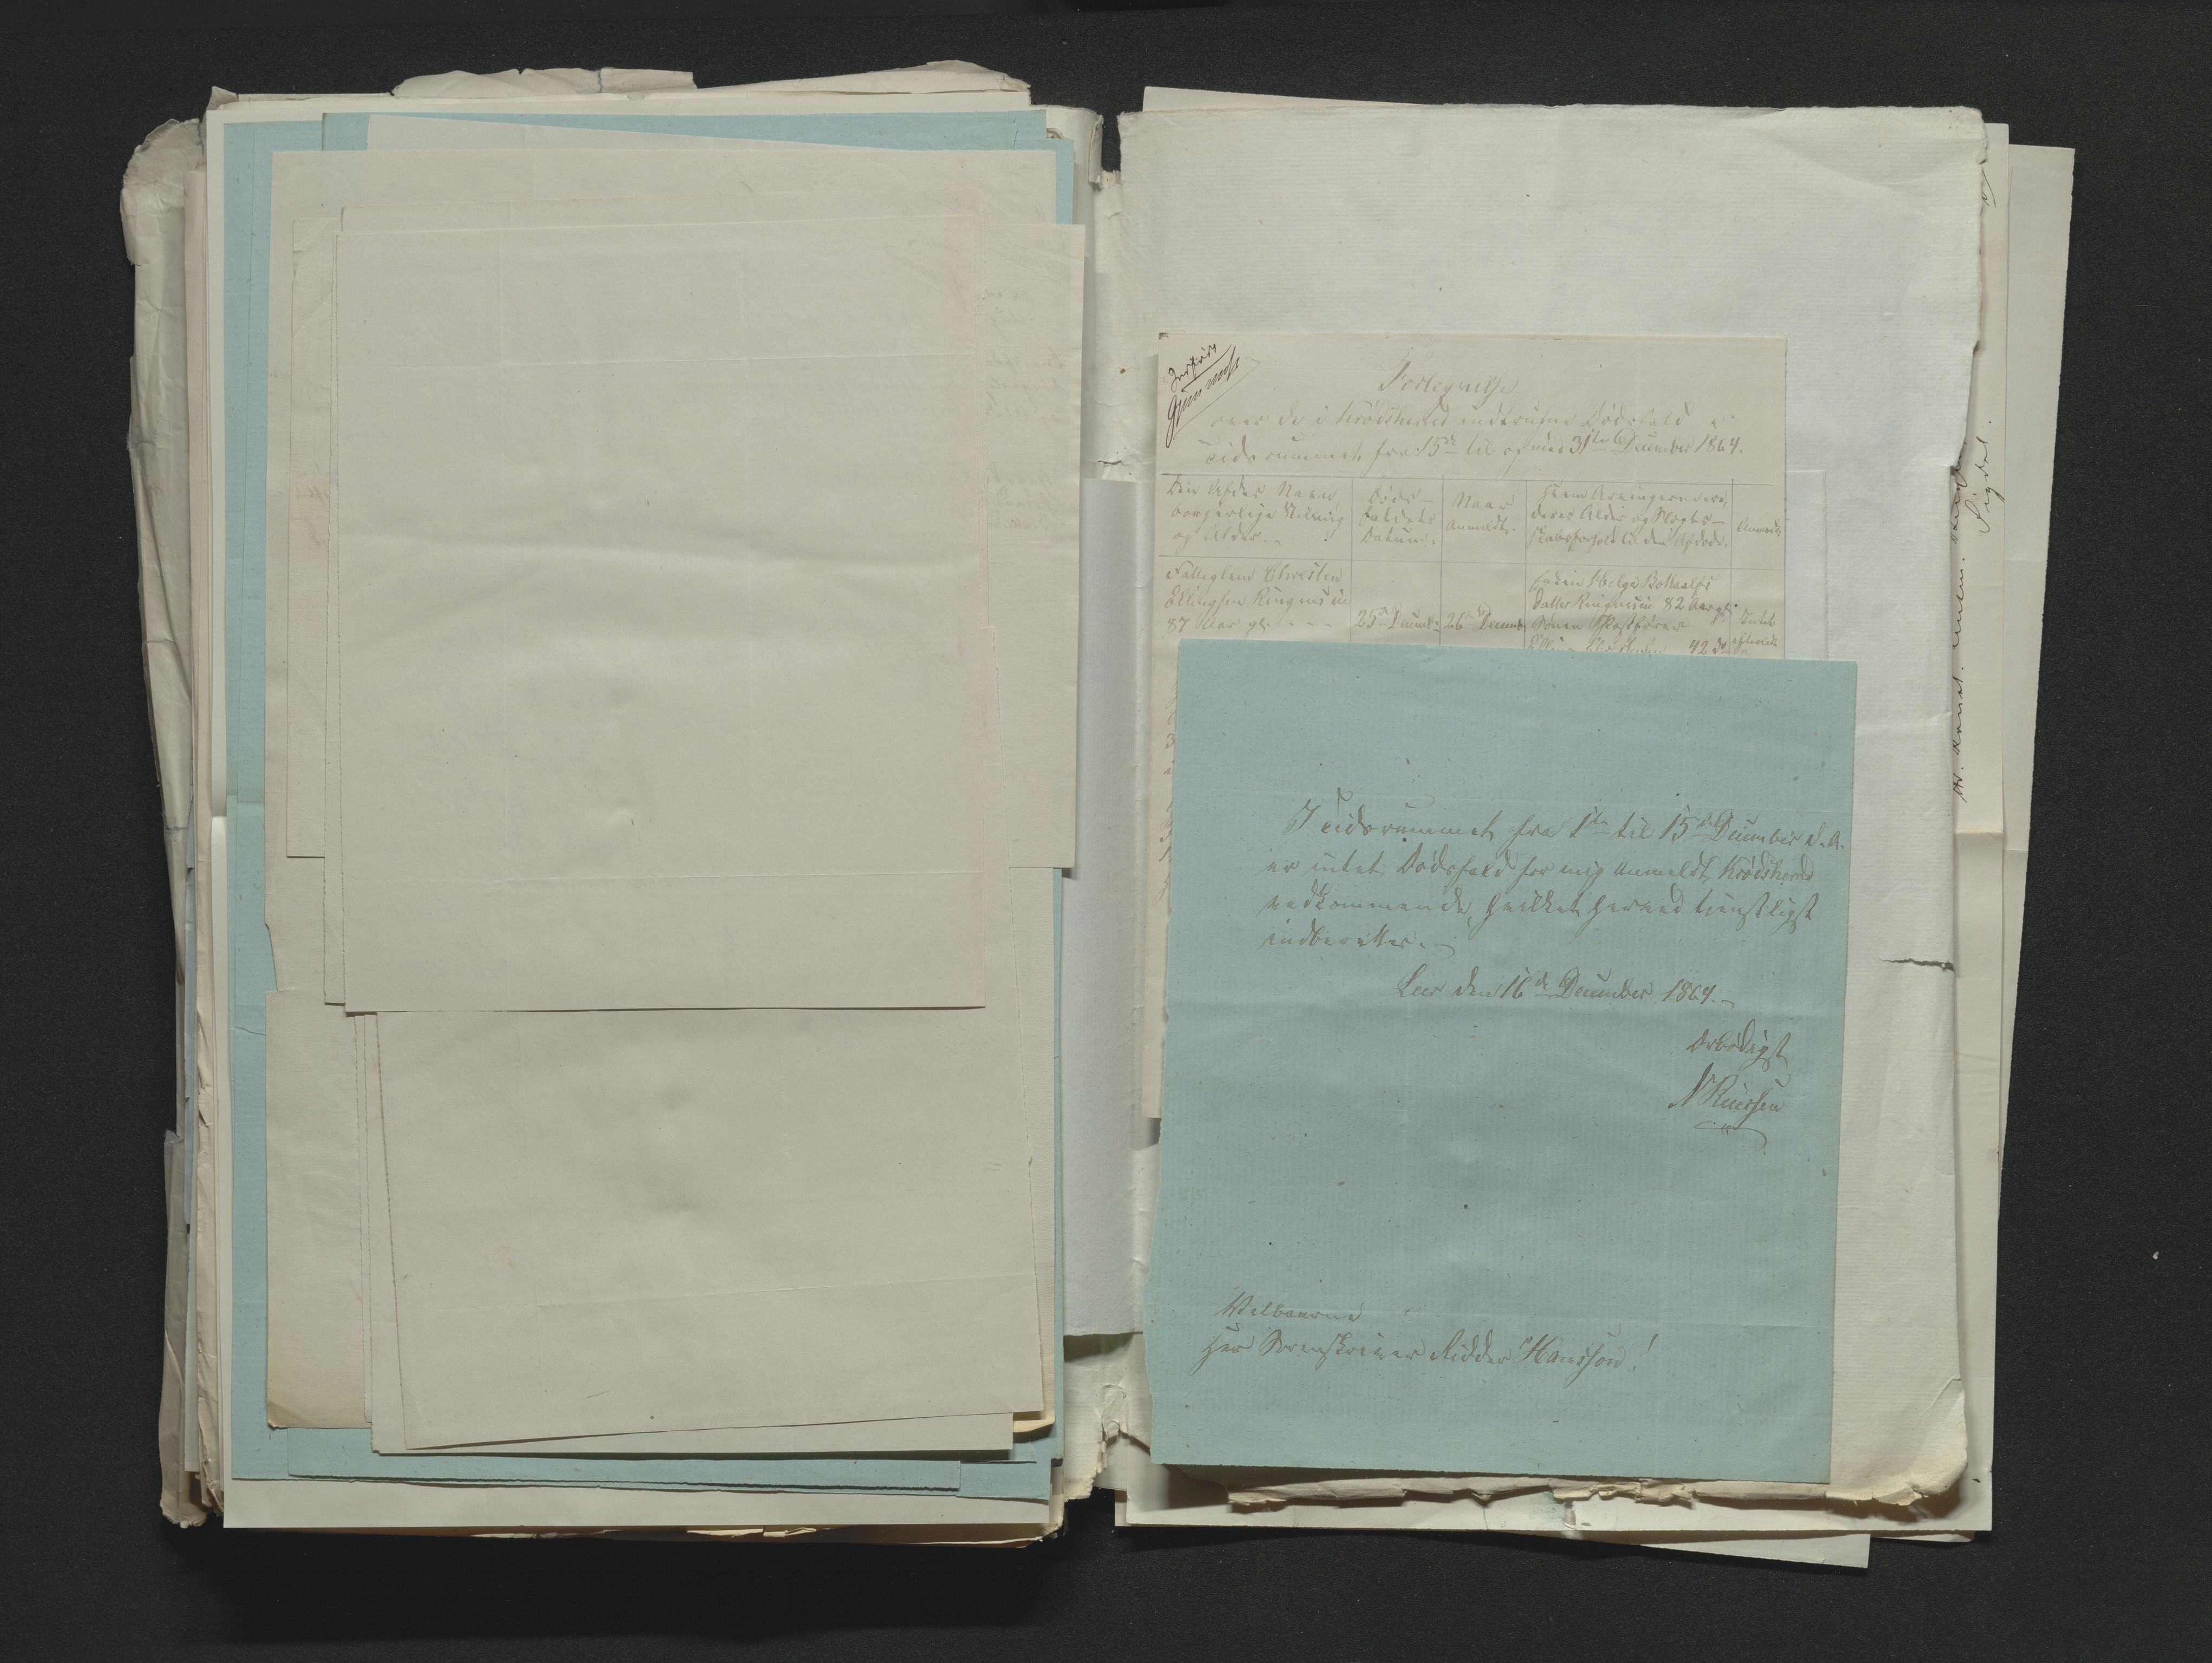 Fortegnelse
over de i Krødsherred indtrufne Dødsfald i
Tidsrummet fra 15de til og med 31te December 1864.
Den Afdødes Navn
borgerlige Stilling
og Alder.
Døds-
faldets
Datum.
Naar
anmeldt.
Hvem Arvingerne ere,
deres Alder og Slægts-
skabsforhold til den Afdøde.
Anmærk:
Fattiglem Christen
Ellingsen Ringnesie
87 Aar gl.
25de Decemb:
26de Decemb:
Enken Helge Botteolfs
datter Ringnesie 82 Aar gl.
Sønen
42 do
Intet
efterladt
I Tidsrummet fra 1te til 15de December d. A.
er intet Dødsfald for mig anmeldt Krødsherred
vedkommende, hvilket herved tjenstligst
indberettes.
Leer den 16de December 1864.
Ærbødigst
N Ruersen
Velbaarne
Herr Sorenskriver Ridder Hansson!
Sigdal.